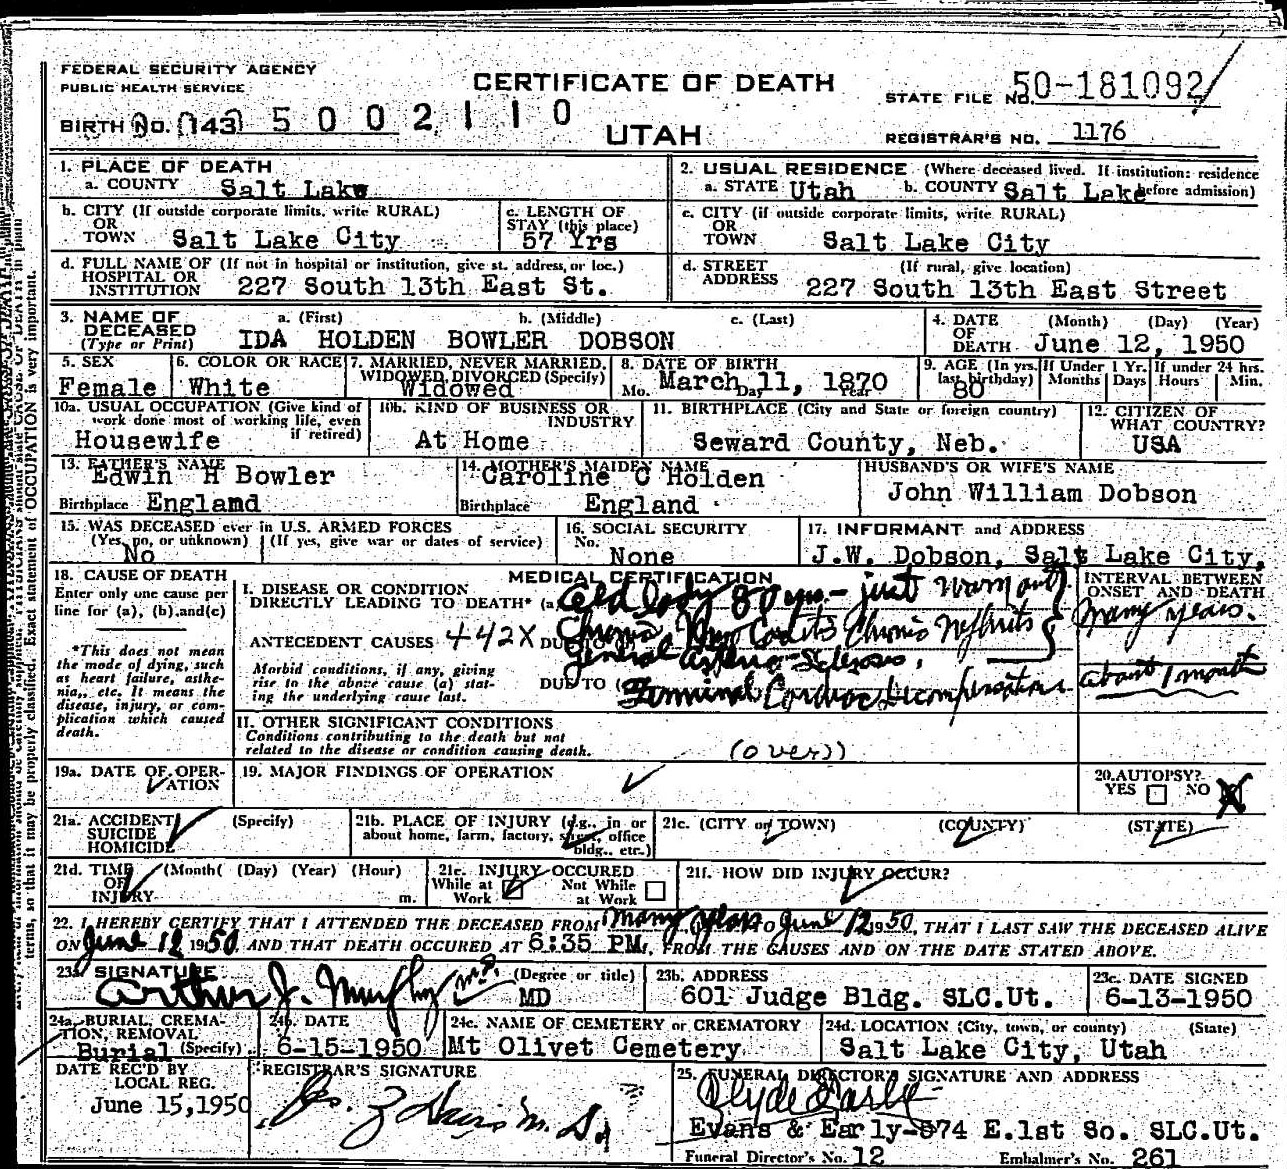 FEDERAL SECURITY AGENCY
PUBLIC HEALTH SERVICE
CERTIFICATE OF DEATH
UTAH
STATE FILE NO. 50-181092
REGISTRAR'S NO. 1176
BIRTH NO. 143 5 0 0 2 1 1 0
1. PLACE OF DEATH
a. COUNTY Salt Lake
2. USUAL RESIDENCE (Where deceased lived. If institution: residence before admission)
a. STATE Utah b. COUNTY Salt Lake
b. CITY (If outside corporate limits, write RURAL)
OR TOWN Salt Lake City
c. LENGTH OF STAY (this place) 57 Yrs
c. CITY (if outside corporate limits, write RURAL)
OR TOWN Salt Lake City
d. FULL NAME OF (If not in hospital or institution, give st. address, or loc.)
HOSPITAL OR INSTITUTION 227 South 13th East St.
d. STREET ADDRESS (If rural, give location)
227 South 13th East Street
3. NAME OF DECEASED (Type or Print) a. (First) b. (Middle) c. (Last)
IDA HOLDEN BOWLER DOBSON
4. DATE OF DEATH (Month) (Day) (Year)
June 12, 1950
5. SEX Female
6. COLOR OR RACE White
7. MARRIED, NEVER MARRIED, WIDOWED, DIVORCED (Specify) Widowed
8. DATE OF BIRTH
Mo. Day Year March 11, 1870
9. AGE (In yrs. last birthday) 80
If Under 1 Yr. Months Days
If under 24 hrs. Hours Min.
10a. USUAL OCCUPATION (Give kind of work done most of working life, even if retired) Housewife
10b. KIND OF BUSINESS OR INDUSTRY At Home
11. BIRTHPLACE (City and State or foreign country) Seward County, Neb.
12. CITIZEN OF WHAT COUNTRY? USA
13. FATHER'S NAME Edwin H Bowler
Birthplace Englamd
14. MOTHER'S MAIDEN NAME Caroline C Holden
Birthplace England
HUSBAND'S OR WIFE'S NAME
John William Dobson
15. WAS DECEASED ever in U.S. ARMED FORCES
(Yes, no, or unknown) (If yes, give war or dates of service)
No
16. SOCIAL SECURITY No. None
17. INFORMANT and ADDRESS
J.W. Dobson, Salt Lake City,
18. CAUSE OF DEATH
Enter only one cause per line for (a), (b), and (c)
*This does not mean the mode of dying, such as heart failure, asthenia, etc. It means the disease, injury, or complication which caused death.
MEDICAL CERTIFICATION
I. DISEASE OR CONDITION DIRECTLY LEADING TO DEATH* (a) old lady 80 yrs - just worn out
ANTECEDENT CAUSES 442X DUE TO Chronic Myo Carditis Chronic Nephritis
General Arterio-Sclerosis,
Morbid conditions, if any, giving rise to the above cause (a) stating the underlying cause last.
DUE TO ( Terminal Cardiac Decompensation
INTERVAL BETWEEN ONSET AND DEATH
Many years.
about 1 month
II. OTHER SIGNIFICANT CONDITIONS
Conditions contributing to the death but not related to the disease or condition causing death.
(over)
19a. DATE OF OPERATION
19. MAJOR FINDINGS OF OPERATION
20. AUTOPSY? YES NO X
21a. ACCIDENT SUICIDE HOMICIDE (Specify)
21b. PLACE OF INJURY (e.g., in or about home, farm, factory, street, office bldg., etc.)
21c. (CITY or TOWN) (COUNTY) (STATE)
21d. TIME OF INJURY (Month( (Day) (Year) (Hour) m.
21e. INJURY OCCURED
While at Work Not While at Work
21f. HOW DID INJURY OCCUR?
22. I HEREBY CERTIFY THAT I ATTENDED THE DECEASED FROM many years TO June 12 1950, THAT I LAST SAW THE DECEASED ALIVE
ON June 12 1950 AND THAT DEATH OCCURED AT 6:35 PM, FROM THE CAUSES AND ON THE DATE STATED ABOVE.
23a SIGNATURE Arthur J. Murphy M.D. (Degree or title) MD
23b. ADDRESS 601 Judge Bldg. SLC.Ut.
23c. DATE SIGNED 6-13-1950
24a. BURIAL, CREMATION, REMOVAL (Specify) Burial
24b. DATE 6-15-1950
24c. NAME OF CEMETERY or CREMATORY Mt Olivet Cemetery
24d. LOCATION (City, town, or county) (State) Salt Lake City, Utah
DATE REC'D BY LOCAL REG.
June 15,1950
REGISTRAR'S SIGNATURE
25. FUNERAL DIRECTOR'S SIGNATURE AND ADDRESS
Clyde Early
Evans & Early-574 E.1st So. SLC.Ut.
Funeral Director's No. 12 Embalmer's No. 261
terms, so that it may be properly classified. Exact statement of OCCUPATION is very important.